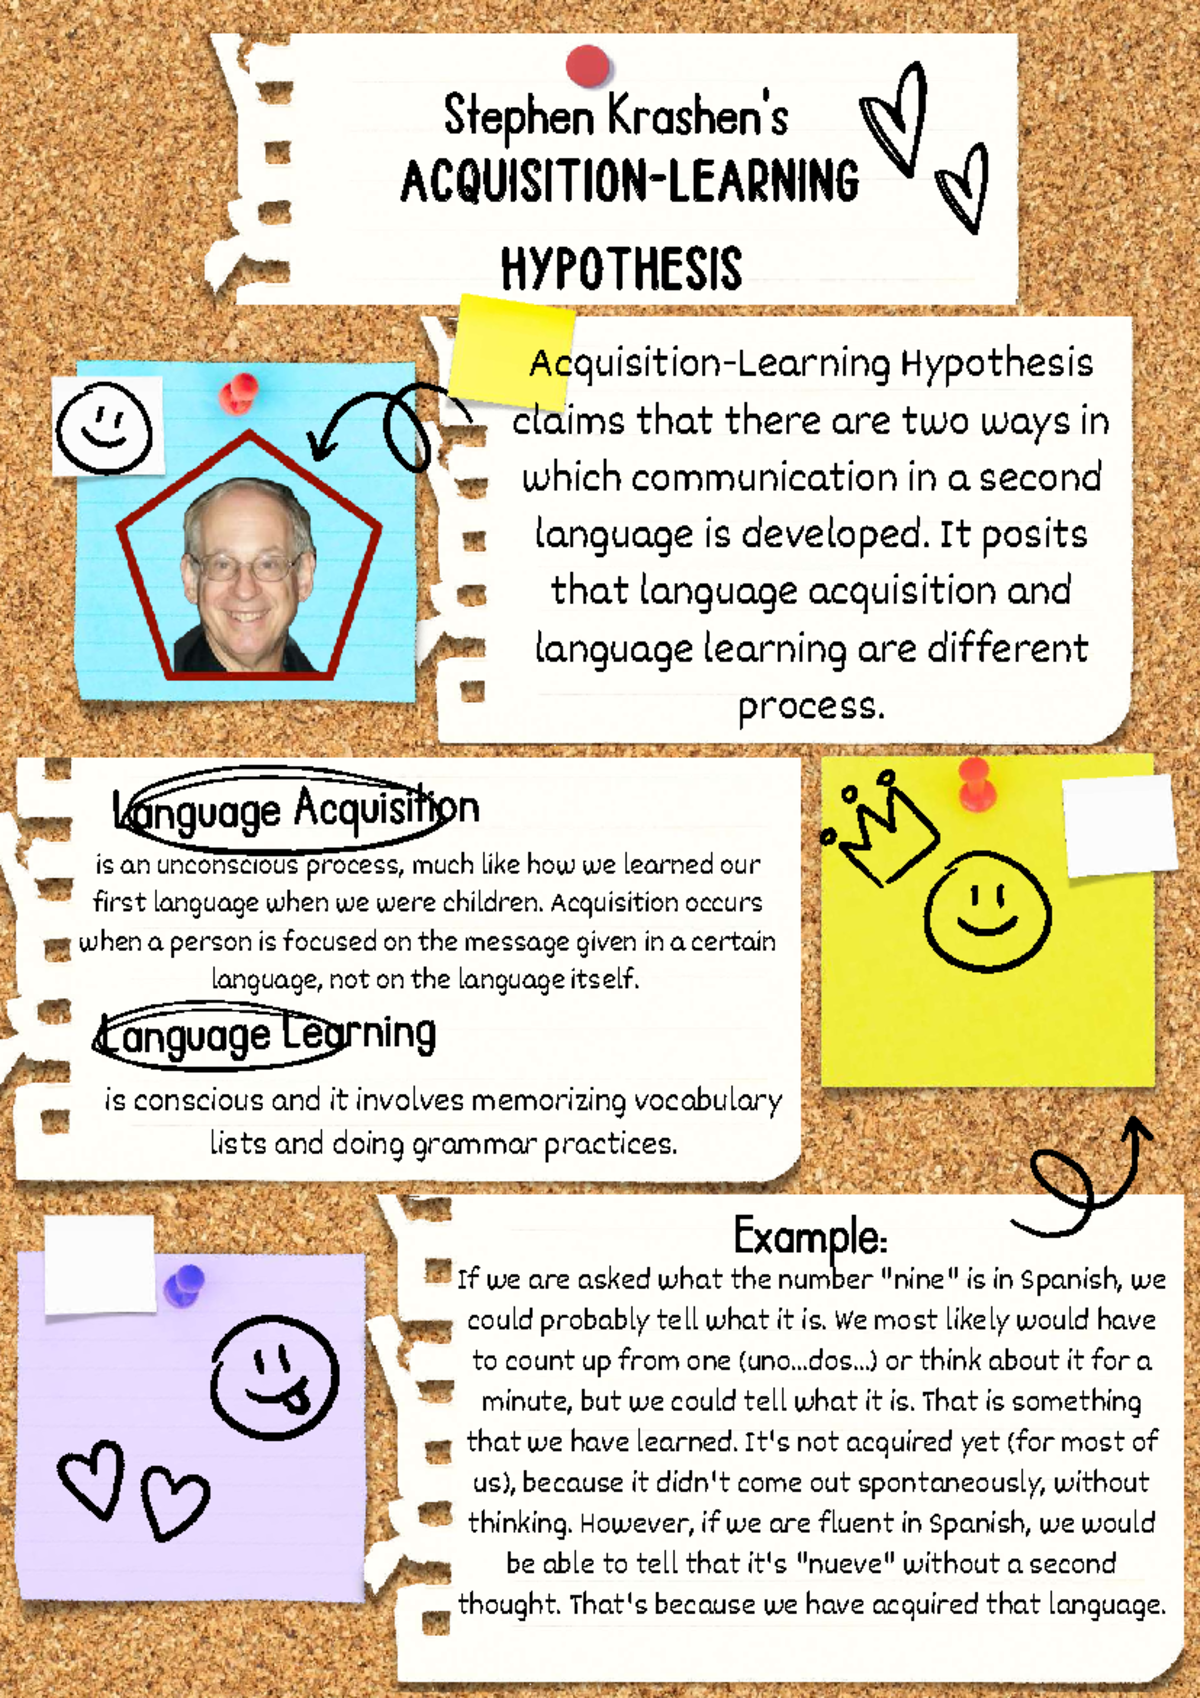 Stephen Krashen's
ACQUISITION-LEARNING
HYPOTHESIS
Acquisition-Learning Hypothesis
claims that there are two ways in
which communication in a second
language is developed. It posits
that language acquisition and
language learning are different
process.
Language Acquisition
is an unconscious process, much like how we learned our
first language when we were children. Acquisition occurs
when a person is focused on the message given in a certain
language, not on the language itself.
Language Learning
is conscious and it involves memorizing vocabulary
lists and doing grammar practices.
Example:
If we are asked what the number "nine" is in Spanish, we
could probably tell what it is. We most likely would have
to count up from one (uno...dos...) or think about it for a
minute, but we could tell what it is. That is something
that we have learned. It's not acquired yet (for most of
us), because it didn't come out spontaneously, without
thinking. However, if we are fluent in Spanish, we would
be able to tell that it's "nueve" without a second
thought. That's because we have acquired that language.